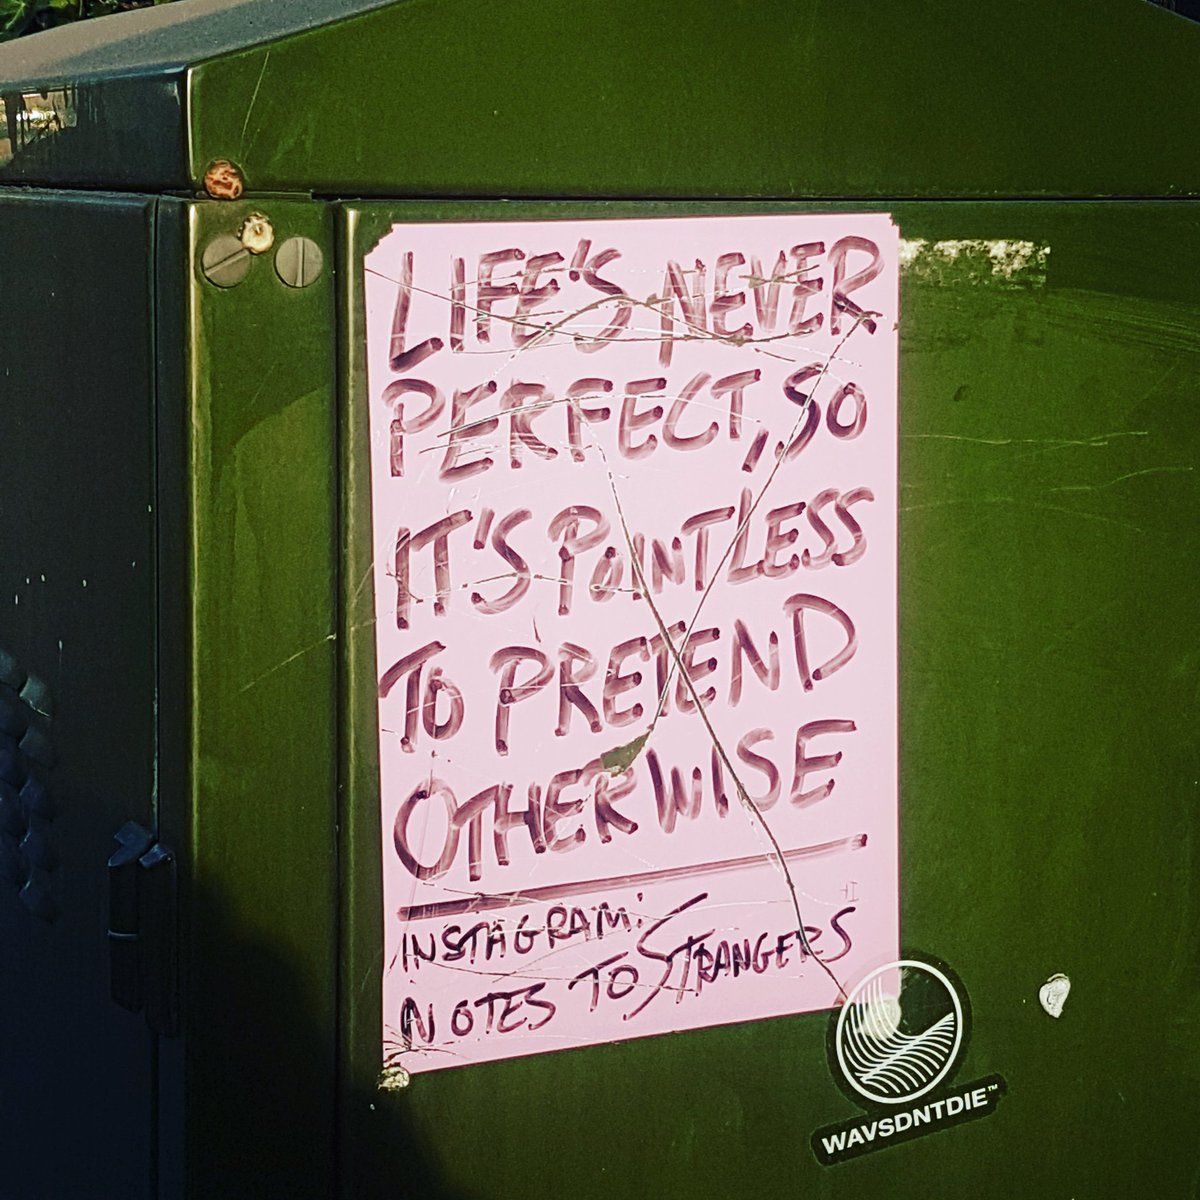 LIFE'S NEVER
PERFECT, SO
IT'S POINTLESS
TO PRETEND
OTHERWISE
INSTAGRAM:
NOTES TO STRANGERS
WAVSDNTDIE™